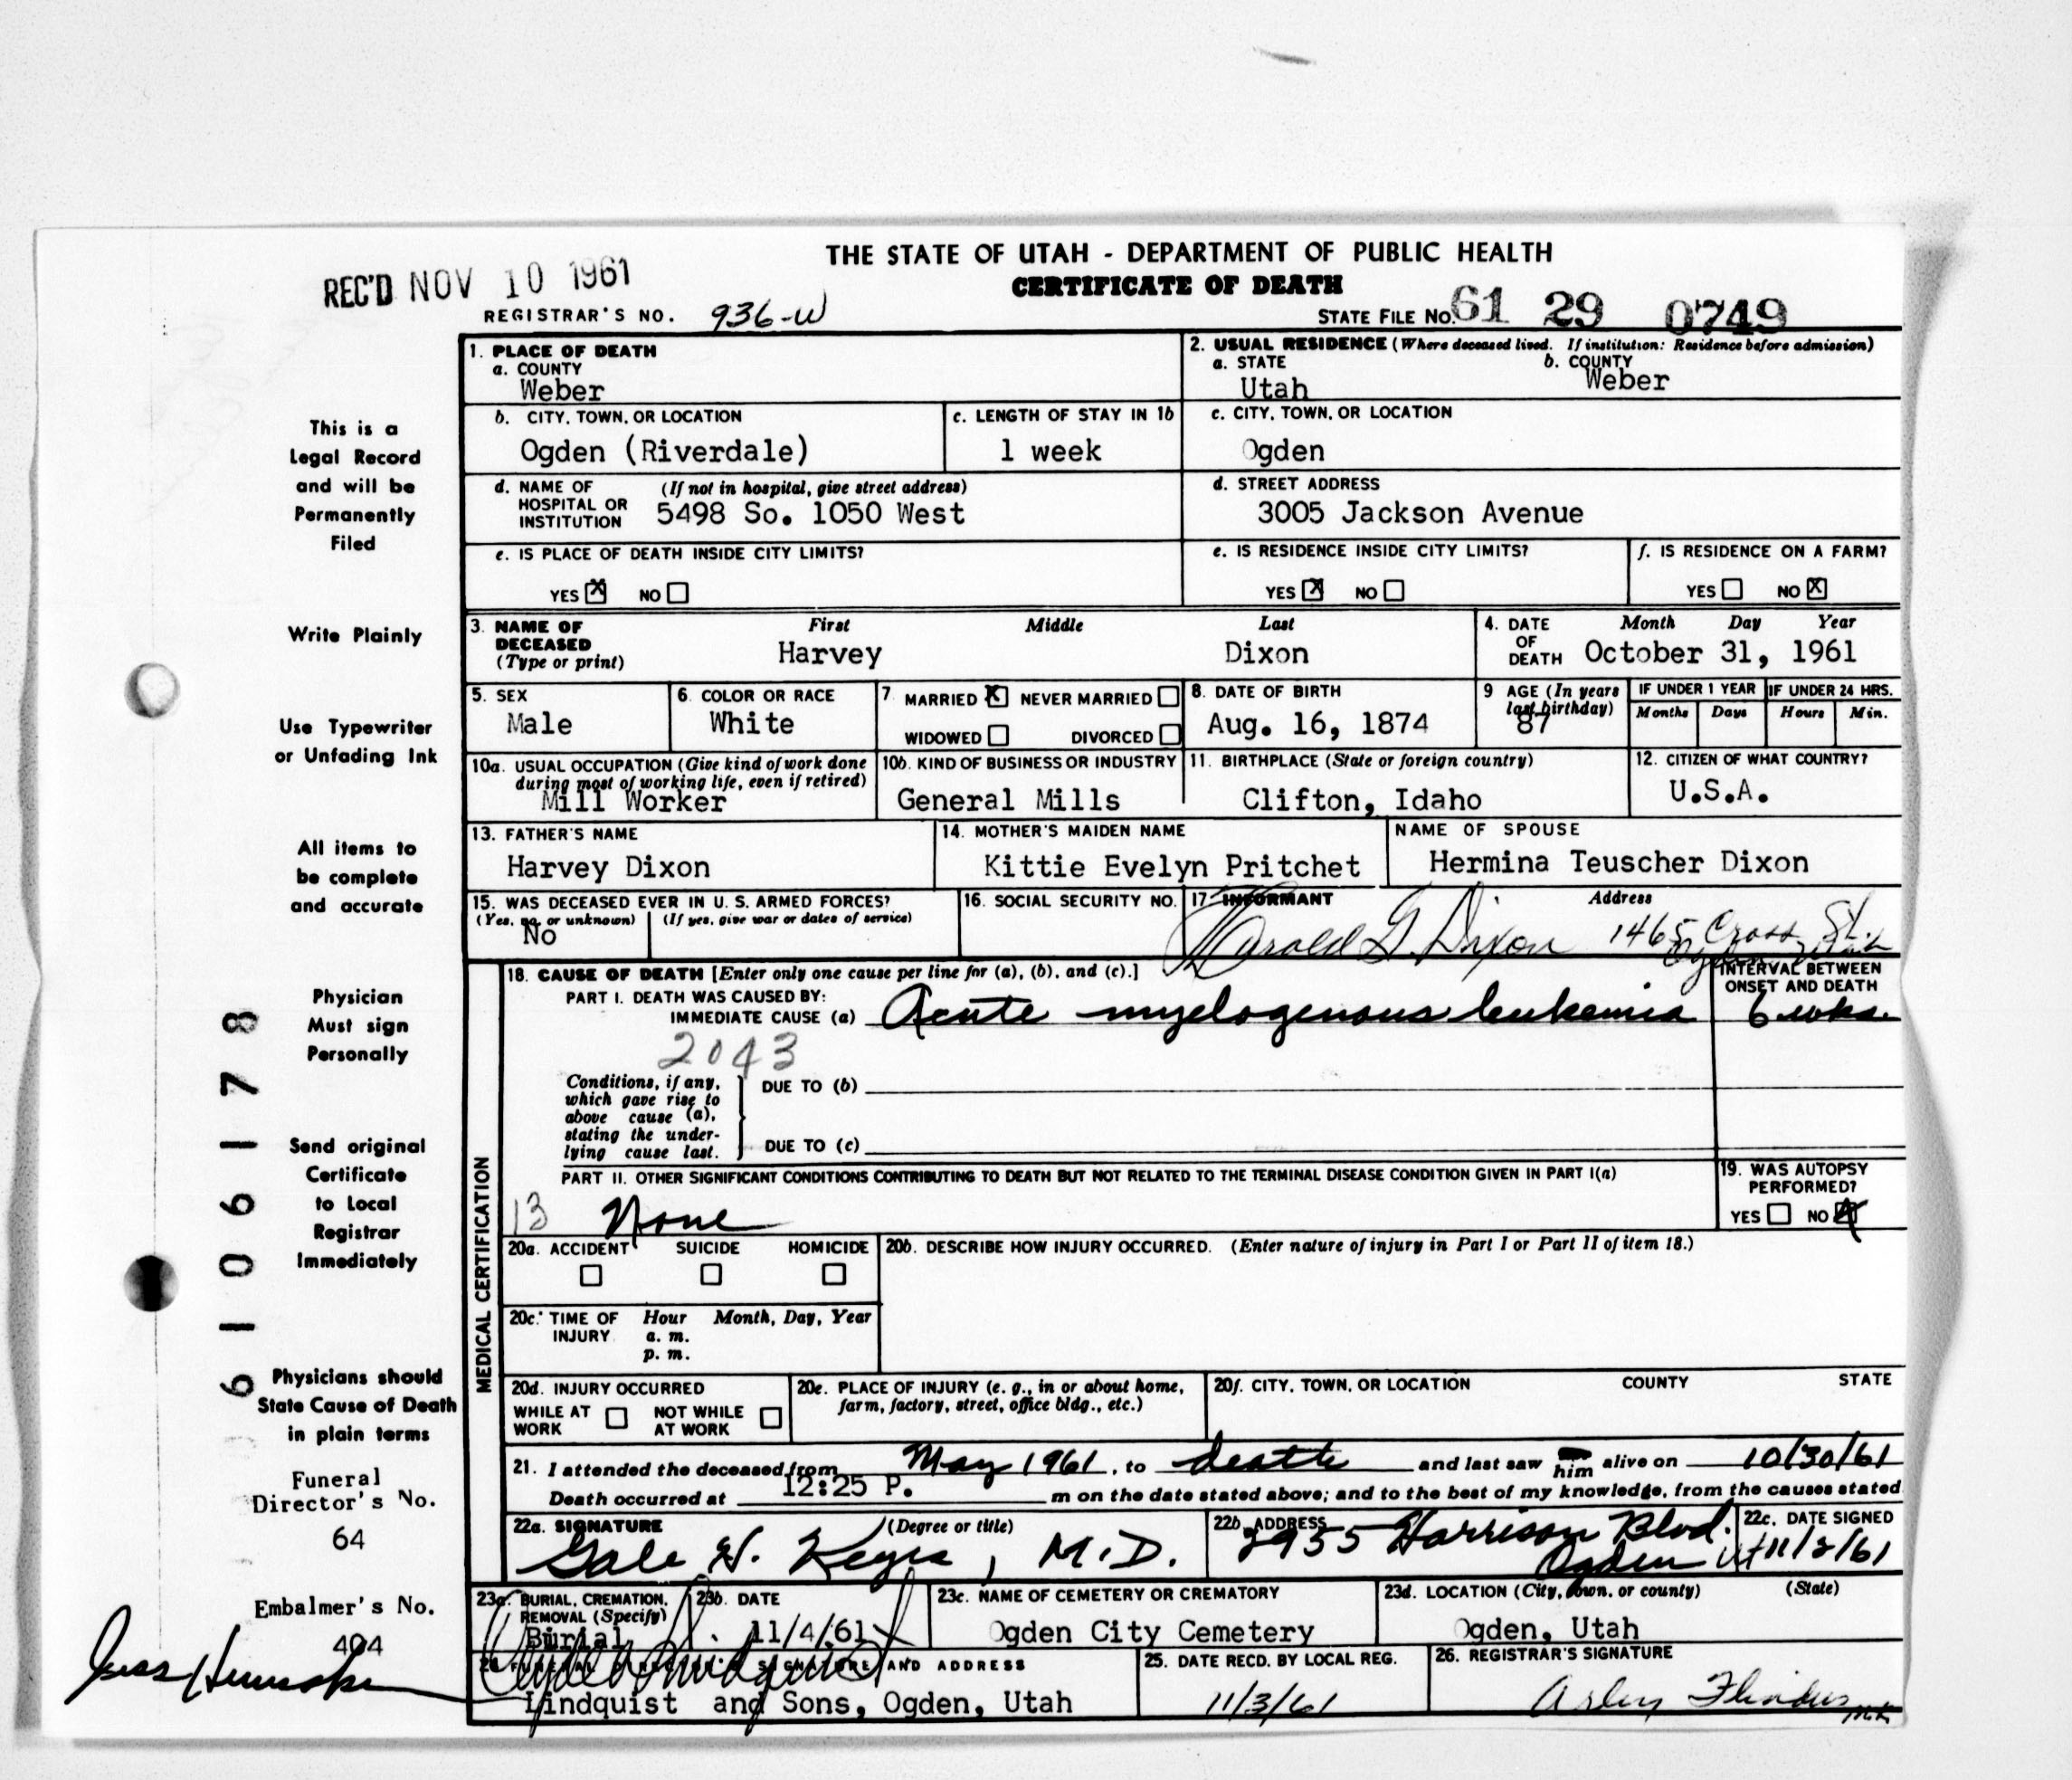 THE STATE OF UTAH - DEPARTMENT OF PUBLIC HEALTH
CERTIFICATE OF DEATH
REC'D NOV 10 1961
REGISTRAR'S NO. 936-W
STATE FILE NO. 61 29 0749
This is a
Legal Record
and will be
Permanently
Filed
Write Plainly
Use Typewriter
or Unfading Ink
All items to
be complete
and accurate
Physician
Must sign
Personally
Send original
Certificate
to Local
Registrar
Immediately
Physicians should
State Cause of Death
in plain terms
Funeral
Director's No.
64
Embalmer's No.
404
61 06178
1. PLACE OF DEATH
a. COUNTY
Weber
2. USUAL RESIDENCE (Where deceased lived. If institution: Residence before admission)
a. STATE b. COUNTY
Utah Weber
b. CITY, TOWN, OR LOCATION
Ogden (Riverdale)
c. LENGTH OF STAY IN 1b
1 week
c. CITY, TOWN, OR LOCATION
Ogden
d. NAME OF HOSPITAL OR INSTITUTION (If not in hospital, give street address)
5498 So. 1050 West
d. STREET ADDRESS
3005 Jackson Avenue
e. IS PLACE OF DEATH INSIDE CITY LIMITS?
YES X NO
e. IS RESIDENCE INSIDE CITY LIMITS?
YES X NO
f. IS RESIDENCE ON A FARM?
YES NO X
3. NAME OF DECEASED (Type or print) First Middle Last
Harvey Dixon
4. DATE OF DEATH Month Day Year
October 31, 1961
5. SEX
Male
6. COLOR OR RACE
White
7. MARRIED X NEVER MARRIED
WIDOWED DIVORCED
8. DATE OF BIRTH
Aug. 16, 1874
9 AGE (In years last birthday)
87
IF UNDER 1 YEAR
Months Days
IF UNDER 24 HRS.
Hours Min.
10a. USUAL OCCUPATION (Give kind of work done during most of working life, even if retired)
Mill Worker
10b. KIND OF BUSINESS OR INDUSTRY
General Mills
11. BIRTHPLACE (State or foreign country)
Clifton, Idaho
12. CITIZEN OF WHAT COUNTRY?
U.S.A.
13. FATHER'S NAME
Harvey Dixon
14. MOTHER'S MAIDEN NAME
Kittie Evelyn Pritchet
NAME OF SPOUSE
Hermina Teuscher Dixon
15. WAS DECEASED EVER IN U. S. ARMED FORCES?
(Yes, no, or unknown) (If yes, give war or dates of service)
No
16. SOCIAL SECURITY NO.
17. INFORMANT Address
Harold G. Dixon 1465 Cross St.
Ogden Utah
MEDICAL CERTIFICATION
18. CAUSE OF DEATH [Enter only one cause per line for (a), (b), and (c).]
INTERVAL BETWEEN ONSET AND DEATH
PART I. DEATH WAS CAUSED BY:
IMMEDIATE CAUSE (a) Acute myelogenous leukemia 6 wks.
2043
Conditions, if any, which gave rise to above cause (a), stating the underlying cause last.
DUE TO (b)
DUE TO (c)
PART II. OTHER SIGNIFICANT CONDITIONS CONTRIBUTING TO DEATH BUT NOT RELATED TO THE TERMINAL DISEASE CONDITION GIVEN IN PART I(a)
13 None
19. WAS AUTOPSY PERFORMED?
YES NO X
20a. ACCIDENT SUICIDE HOMICIDE
20b. DESCRIBE HOW INJURY OCCURRED. (Enter nature of injury in Part I or Part II of item 18.)
20c. TIME OF INJURY Hour Month, Day, Year
a. m.
p. m.
20d. INJURY OCCURRED
WHILE AT WORK NOT WHILE AT WORK
20e. PLACE OF INJURY (e. g., in or about home, farm, factory, street, office bldg., etc.)
20f. CITY, TOWN, OR LOCATION COUNTY STATE
21. I attended the deceased from May 1961, to death and last saw him alive on 10/30/61
Death occurred at 12:25 P. m on the date stated above; and to the best of my knowledge, from the causes stated
22a. SIGNATURE (Degree or title)
Gale H. Keyes, M.D.
22b. ADDRESS
2955 Harrison Blvd.
Ogden Ut
22c. DATE SIGNED
11/2/61
23a. BURIAL, CREMATION, REMOVAL (Specify)
Burial
23b. DATE
11/4/61
23c. NAME OF CEMETERY OR CREMATORY
Ogden City Cemetery
23d. LOCATION (City, town, or county) (State)
Ogden, Utah
SIGNATURE AND ADDRESS
Lindquist and Sons, Ogden, Utah
25. DATE RECD. BY LOCAL REG.
11/3/61
26. REGISTRAR'S SIGNATURE